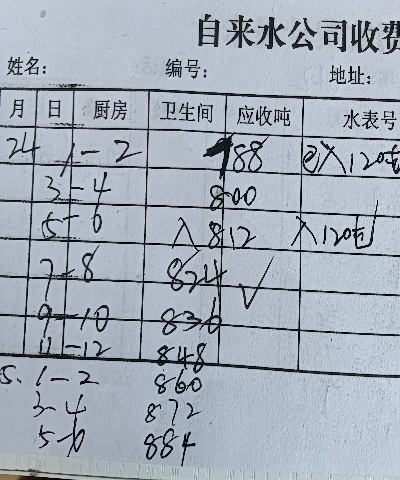 自来水公司收费
姓名: 编号: 地址:
月 日 厨房 卫生间 应收吨 水表号
24 1-2 788 已入120吨
3-4 800
5-6 入812 入120吨
7-8 824 ✓
9-10 836
11-12 848
5. 1-2 860
3-4 872
5-6 884